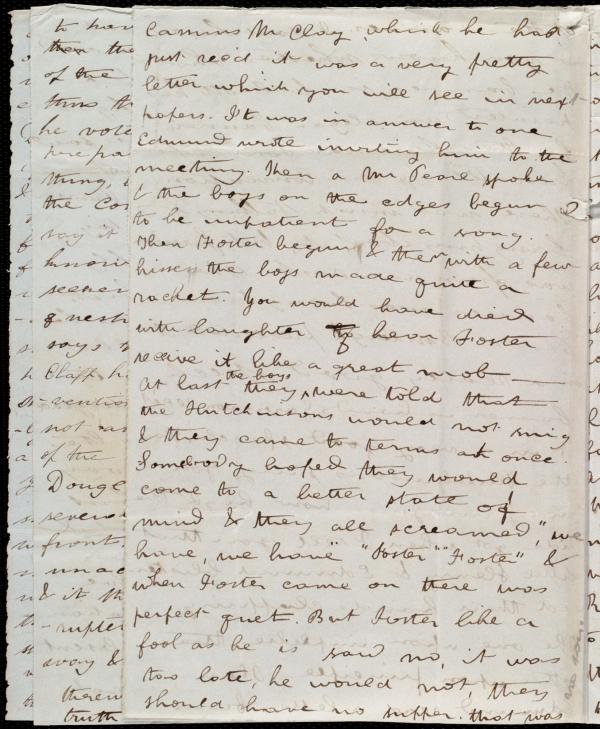 Cassius M. Clay which he had
just rec'd it was a very pretty
letter which you will see in next
papers. It was in answer to one
Edmund wrote inviting him to the
meeting. Then a Mr Pease spoke
& the boys on the edges begun
to be impatient for a song.
Then Foster begun & then with a few
hisses the boys made quite a
racket. You would have died
with laughter to hear Foster
receive it like a great mob —
At last they, the boys were told that
the Hutchinsons would not sing
& they came to terms at once.
Somebody hoped they would
come to a better state of
mind & they all screamed, "we
have, we have" "Foster" "Foster" &
when Foster came on there was
perfect quiet. But Foster like a
fool as he is said no, it was
too late, he would not, they
should have no supper. that was
to hav
then the
of the
thus th
he vote
prepa
thing,
the Co
say it
know
seener
says
Clapp h
-ventio
not as
of the
Dougl
severa
front
unac
& it th
-rupte
away &
therew
truth